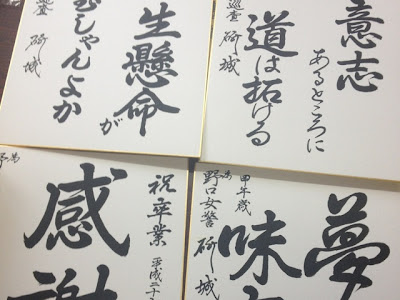 意志
あるところに
道は拓ける
巡査 研城
生懸命が
むしゃんよか
研城
夢
味
甲午歳
為
野口女警 研城
祝卒業 平成二十
感謝